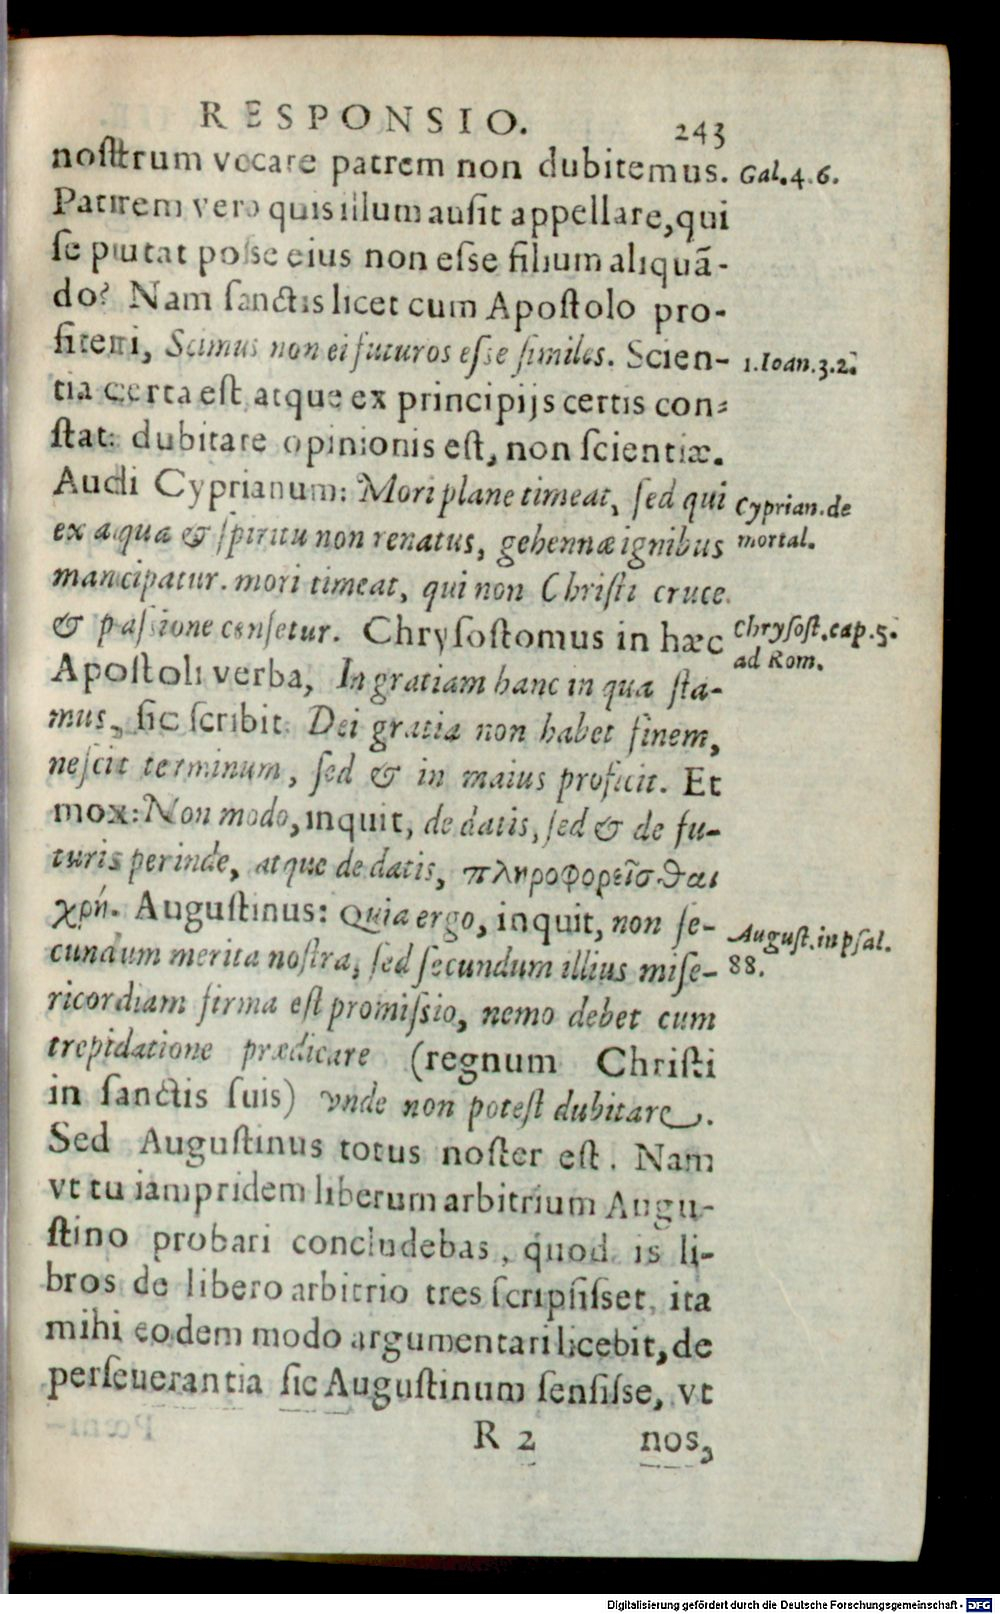 RESPONSIO. 243
nosttrum vocare patrem non dubitemus. Gal. 4. 6.
Patrem vero quis illum ausit appellare, qui
se putat posse eius non esse filium aliquã-
do? Nam sanctis licet cum Apostolo pro-
fiteri, Scimus non ei futuros esse similes. Scien- 1. Ioan. 3. 2.
tia certa est atque ex principijs certis con-
stat: dubitare opinionis est, non scientiæ.
Audi Cyprianum: Mori plane timeat, sed qui Cyprian. de
ex aqua & spiritu non renatus, gehennæ ignibus mortal.
mancipatur. mori timeat, qui non Christi cruce
& passione censetur. Chrysostomus in hæc Chrysost. cap. 5.
Apostoli verba, In gratiam hanc in qua sta- ad Rom.
mus, sic scribit: Dei gratia non habet finem,
nescit terminum, sed & in maius proficit. Et
mox: Non modo, inquit, de datis, sed & de fu-
turis perinde, atque de datis, πληροφορεῖσθαι
χρή. Augustinus: Quia ergo, inquit, non se- August. in psal.
cundum merita nostra, sed secundum illius mise- 88.
ricordiam firma est promissio, nemo debet cum
trepidatione prædicare (regnum Christi
in sanctis suis) vnde non potest dubitare.
Sed Augustinus totus noster est. Nam
vt tu iampridem liberum arbitrium Augu-
stino probari concludebas, quod is li-
bros de libero arbitrio tres scripsisset, ita
mihi eodem modo argumentari licebit, de
perseuerantia sic Augustinum sensisse, vt
R 2 nos,
Digitalisierung gefördert durch die Deutsche Forschungsgemeinschaft - DFG